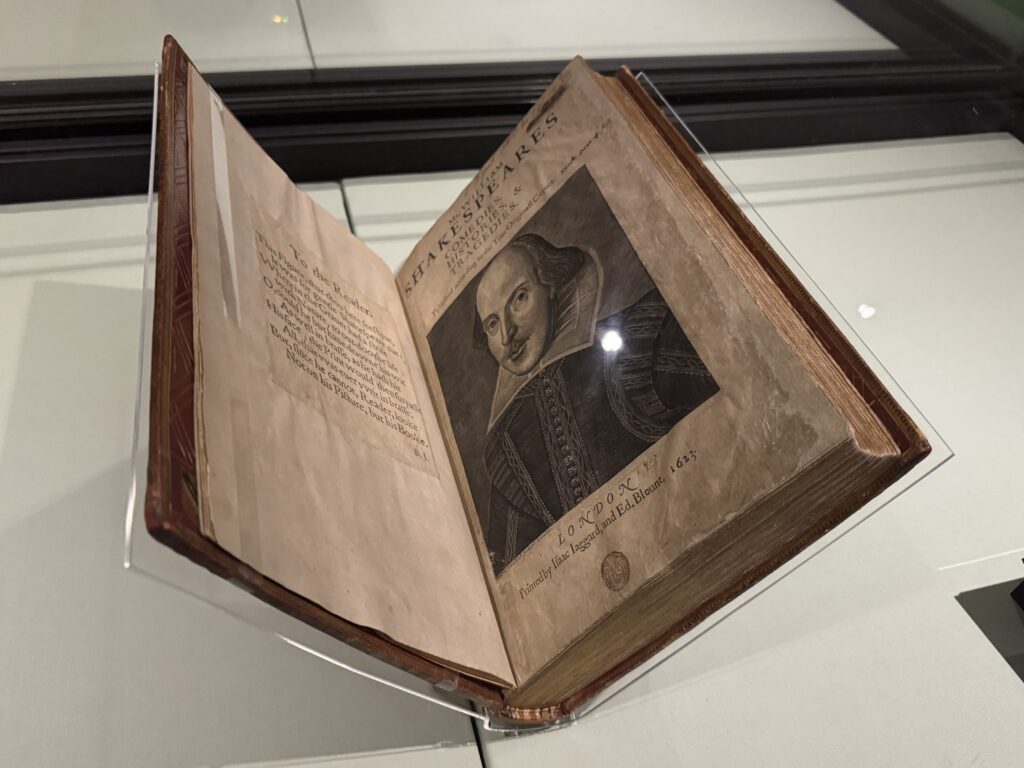 To the Reader.
This Figure, that thou here seest put,
It was for gentle Shakespeare cut;
Wherein the Grauer had a strife
with Nature, to out-doo the life :
O, could he but haue drawne his wit
As well in brasse, as he hath hit
His face; the Print would then surpasse
All, that vvas euer vvrit in brasse.
But, since he cannot, Reader, looke
Not on his Picture, but his Booke.
B. I.
Mr. WILLIAM
SHAKESPEARES
COMEDIES,
HISTORIES, &
TRAGEDIES.
Published according to the True Originall Copies.
LONDON
Printed by Isaac Iaggard, and Ed. Blount. 1623.